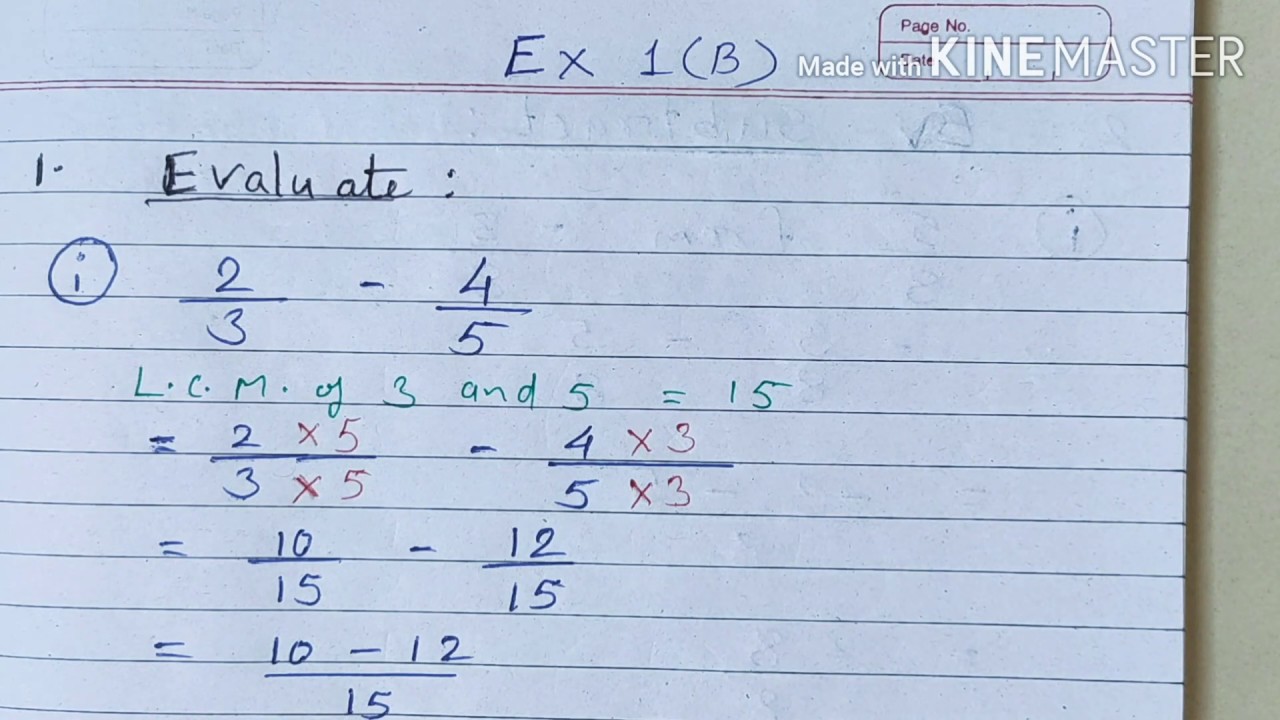 Page No.
Date
Made with KINEMASTER
Ex 1(B)
1. Evaluate :
i 2/3 - 4/5
L.C.M. of 3 and 5 = 15
= 2 × 5 / 3 × 5 - 4 × 3 / 5 × 3
= 10/15 - 12/15
= 10 - 12 / 15